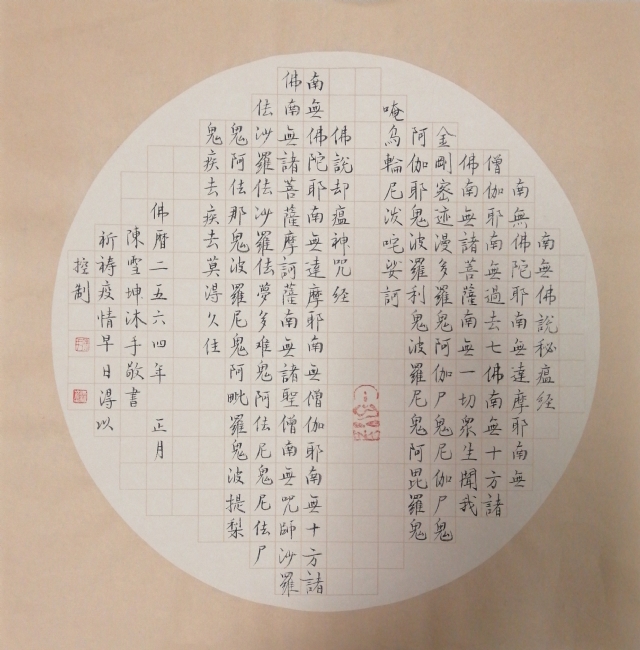 南無佛說秘瘟經
南無佛陀耶南無達摩耶南無
僧伽耶南無過去七佛南無十方諸
佛南無諸菩薩南無一切衆生聞我
金剛密迹漫多羅鬼阿伽尸鬼尼伽尸鬼
阿伽耶鬼波羅利鬼波羅尼鬼阿毘羅鬼
唵烏輪尼泼咤娑訶
佛說却瘟神咒经
南無佛陀耶南無達摩耶南無僧伽耶南無十方諸
佛南無諸菩薩摩訶薩南無諸聖僧南無咒師沙羅
佉沙羅佉沙羅佉夢多难鬼阿佉尼鬼尼佉尸
鬼阿佉那鬼波羅尼鬼阿毗羅鬼波提梨
鬼疾去疾去莫得久住
佛曆二五六四年 正月
陳雪坤沐手敬書
祈禱疫情早日得以
控制